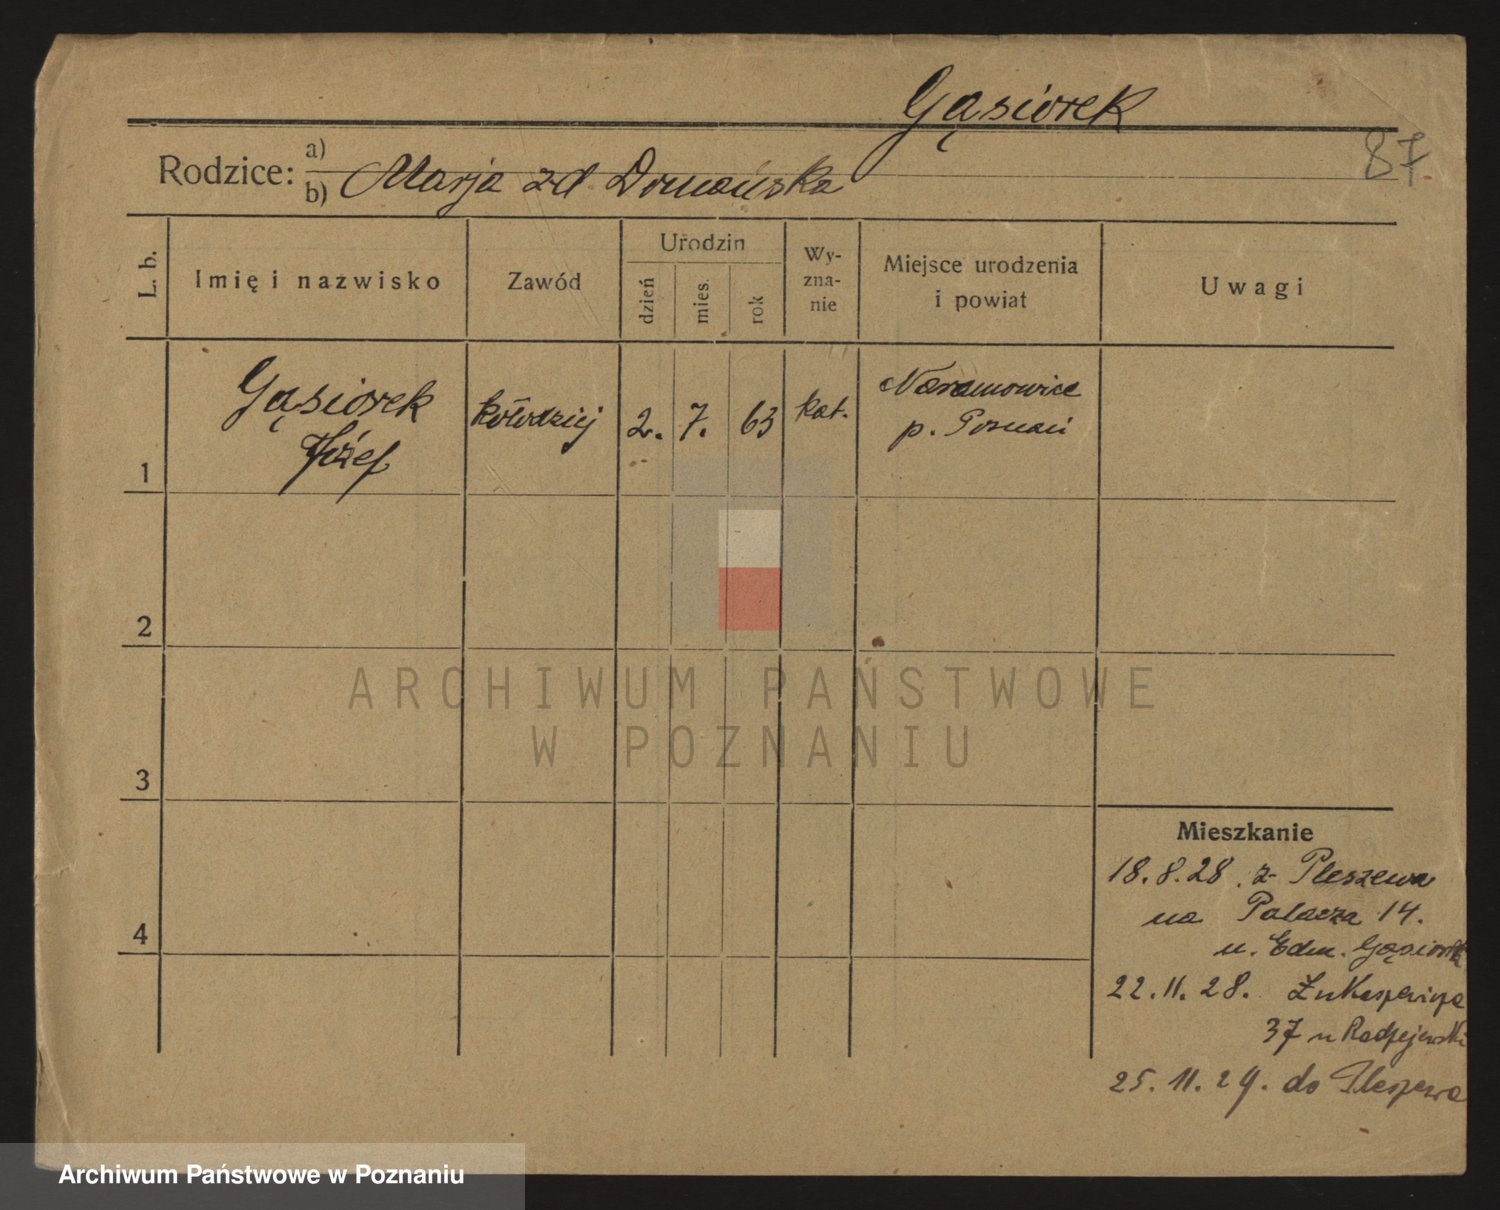 Gąsiorek
87.
Rodzice: a)
b) Marja zd Domańska
L. b.
Imię i nazwisko
Zawód
Urodzin
dzień
mies.
rok
Wy-
zna-
nie
Miejsce urodzenia
i powiat
Uwagi
1
Gąsiorek
Józef
kołodziej
2. 7. 63
kat.
Naramowice
p. Poznań
2
3
4
Mieszkanie
18.8.28. z Pleszewa
na Palacza 14.
u. Edm. Gąsiorek
22.11.28. Łukaszewicza
37 u Radzejewski
25.11.29. do Pleszewa
ARCHIWUM PAŃSTWOWE
W POZNANIU
Archiwum Państwowe w Poznaniu